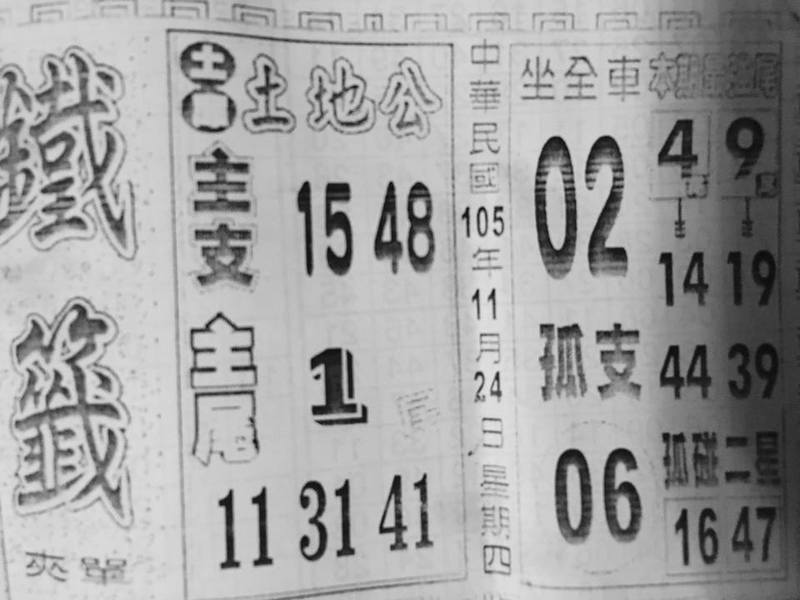 鐵籤
夾單
土地公
主支
15 48
主尾
1 尾
11 31 41
中華民國105年11月24日星期四
坐全車
02
孤支
06
本期最強尾
4 9
14 19
44 39
孤碰二星
16 47